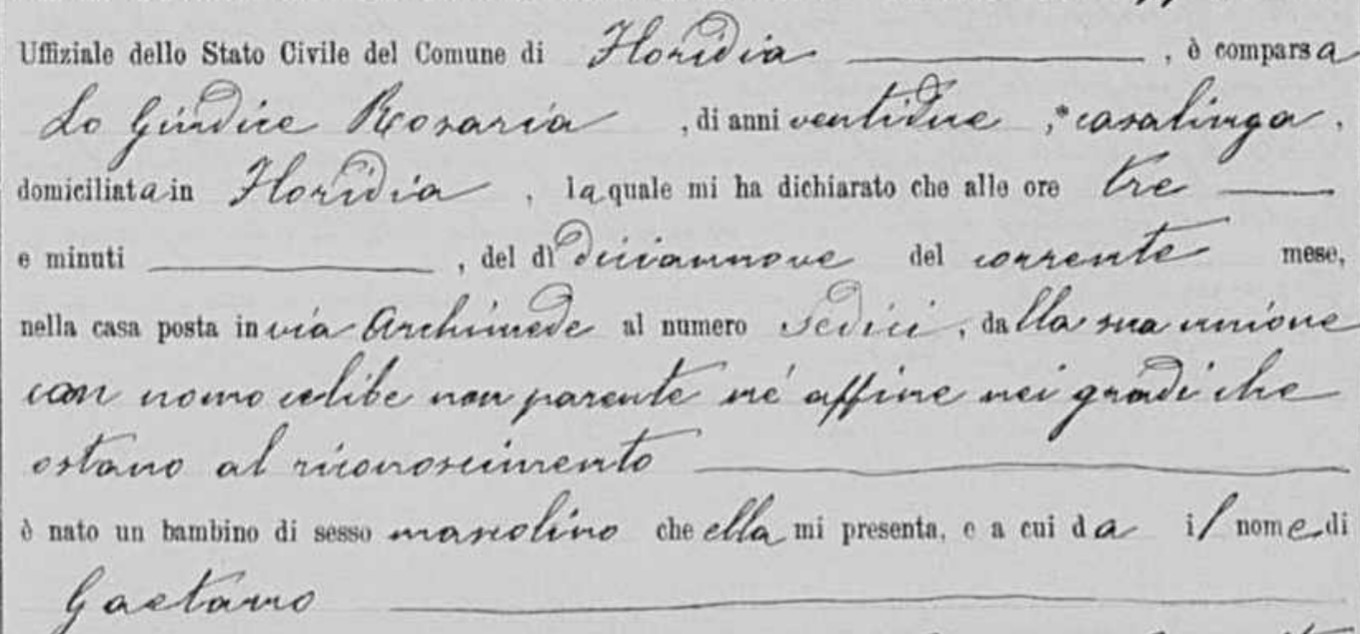 Uffiziale dello Stato Civile del Comune di Floridia, è comparsa
Lo Giudice Rosaria, di anni ventidue, casalinga,
domiciliata in Floridia, la quale mi ha dichiarato che alle ore tre
e minuti, del dì diciannove del corrente mese,
nella casa posta in via Archimede al numero sedici, dalla sua unione
con uomo celibe non parente né affine nei gradi che
ostano al riconoscimento
è nato un bambino di sesso mascolino che ella mi presenta, e a cui da il nome di
Gaetano